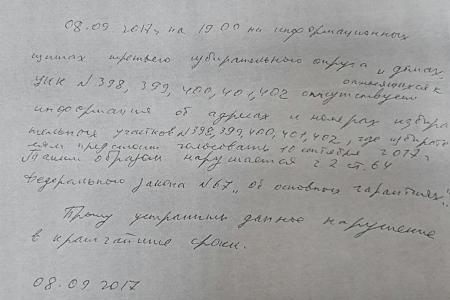 08.09.2017г, на 19 00 на информационных
щитах третьего избирательного округа и домах,
относящихся к
УИК N 398, 399, 400, 401, 402 отсутствует
информация об адресах и номерах избира
тельных участков N 398, 399, 400, 401, 402, где избирате
лям предстоит голосовать 10 сентября 2017г.
Таким образом нарушается ч 2 ст. 64
Федерального закона N 67 „Об основных гарантиях"
Прошу устранить данное нарушение
в кратчайшие сроки.
08.09 2017